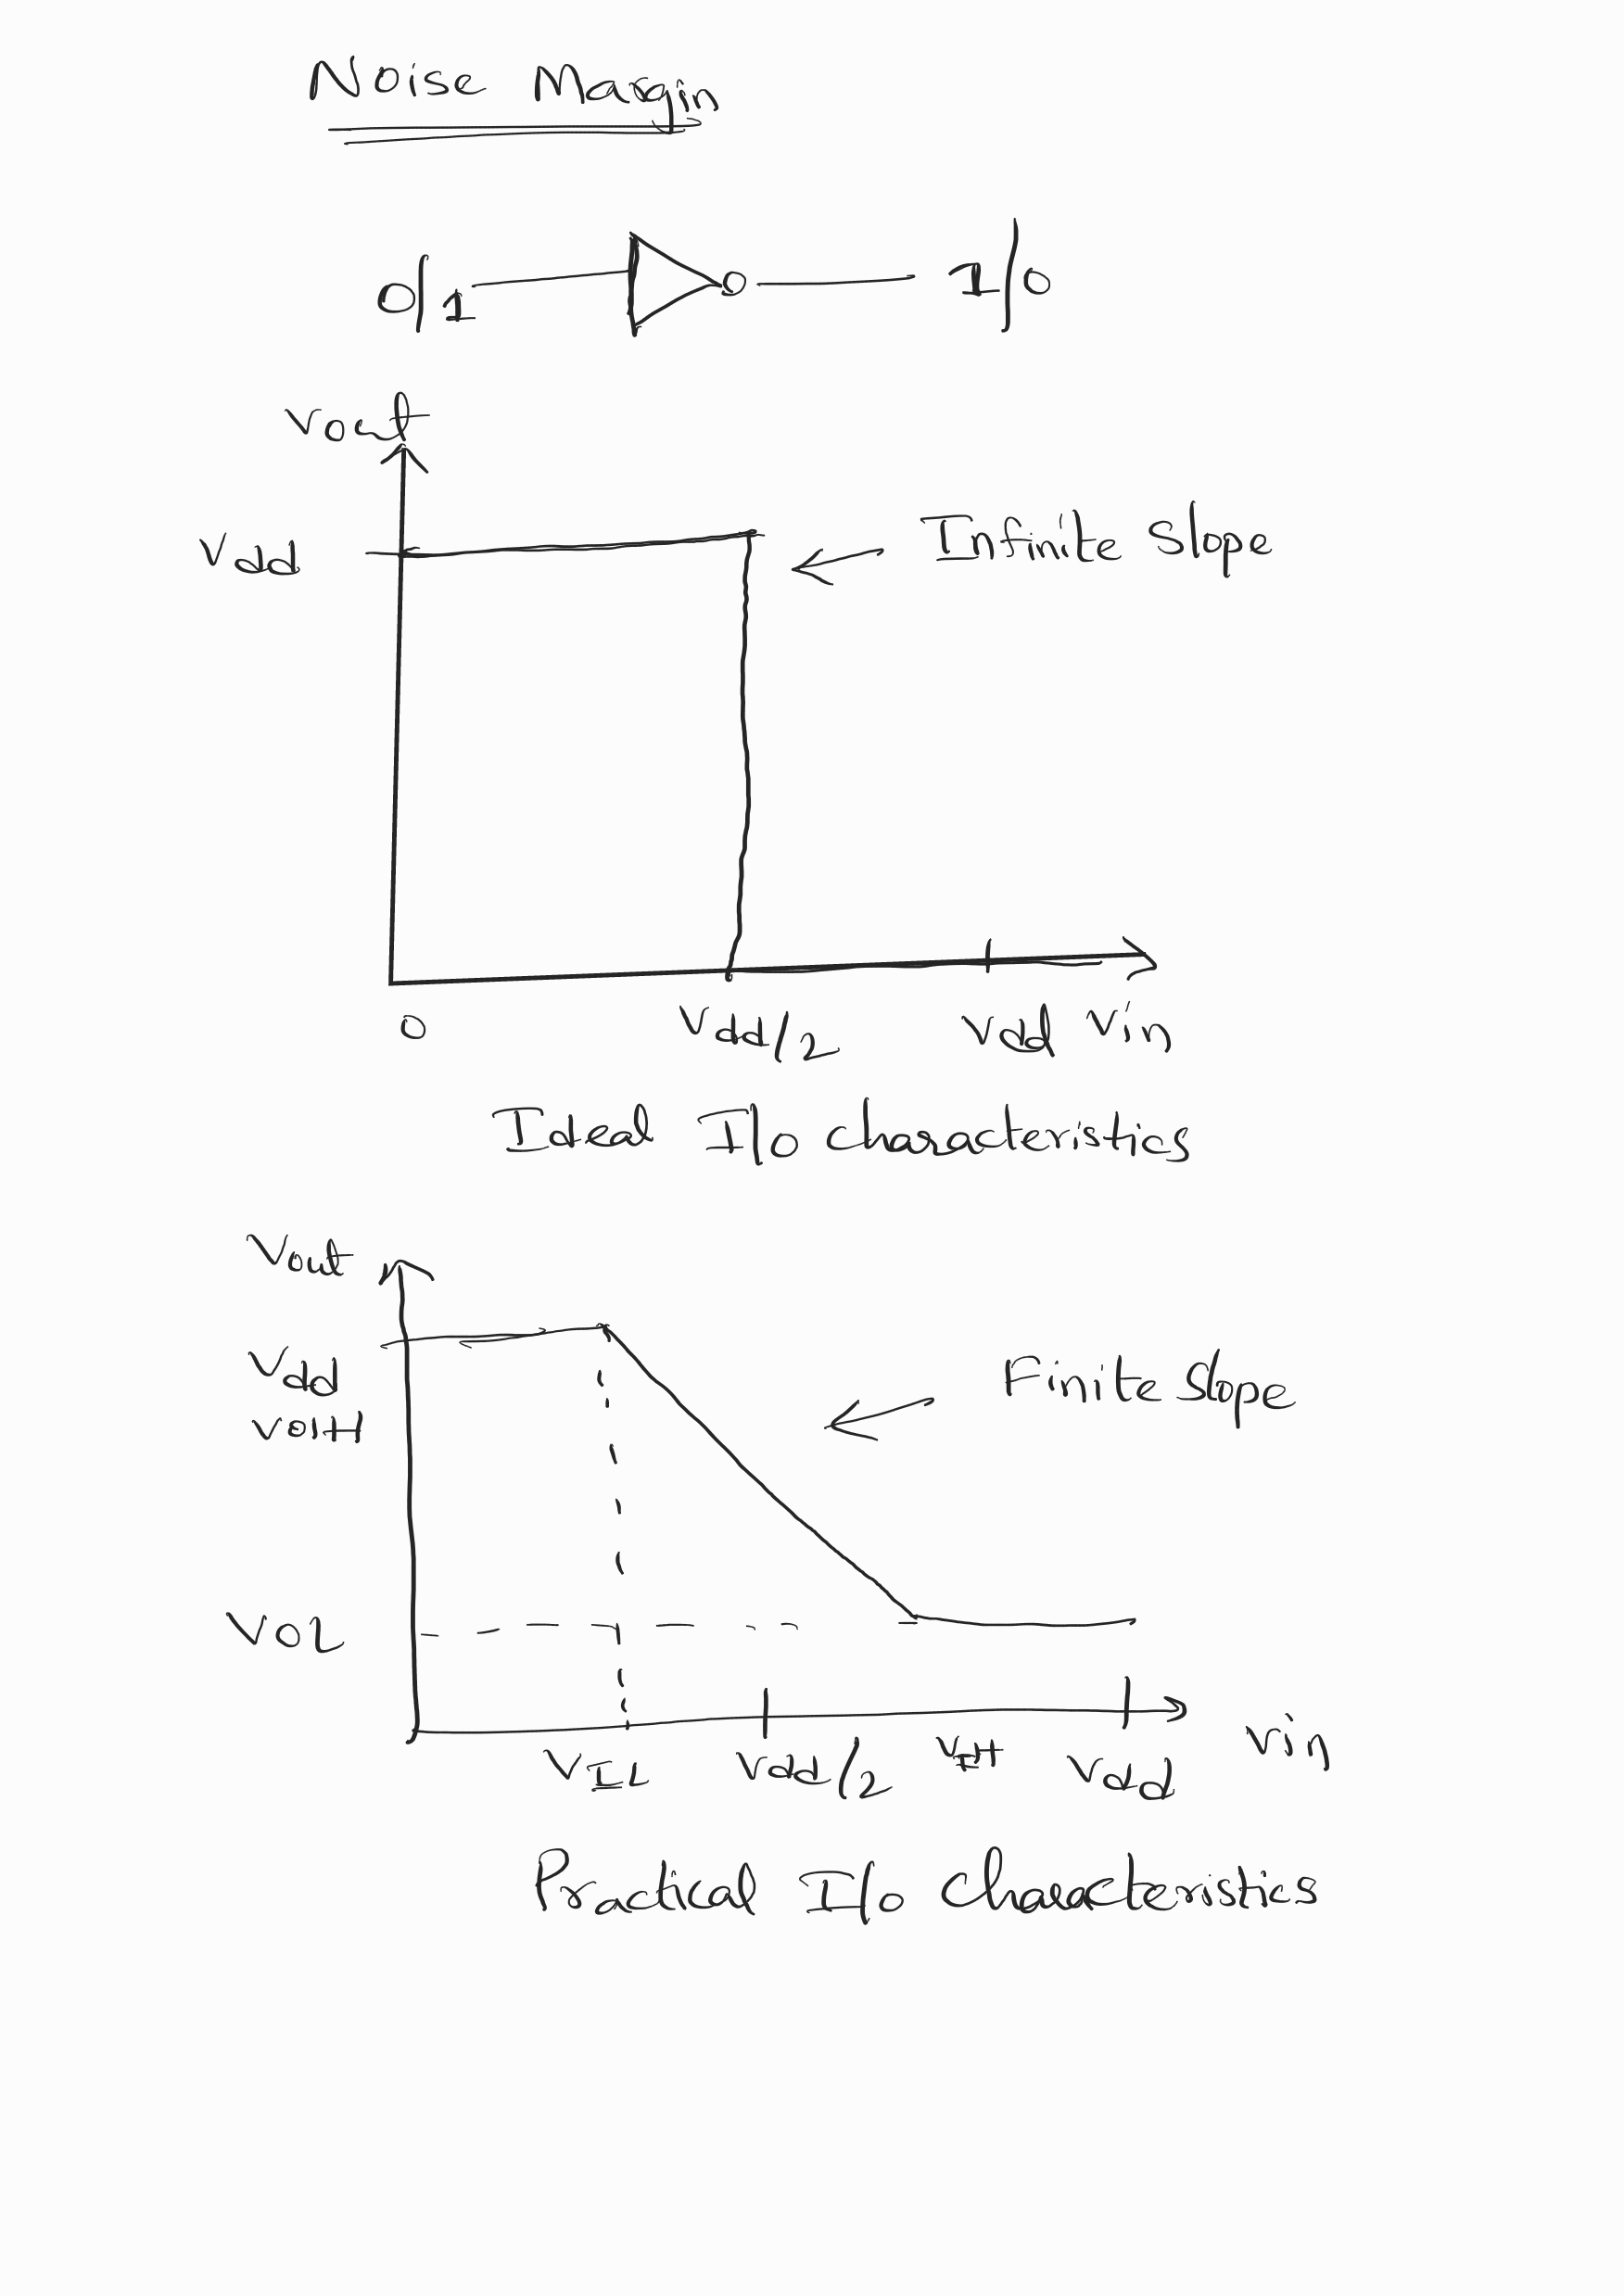 Noise Margin
0/1 1/0
Vout
Vdd
Infinite Slope
0 Vdd/2 Vdd Vin
Ideal I/o characteristics
Vout
Vdd
VOH
Finite Slope
VOL
VIL Vdd/2 VIH Vdd Vin
Practical I/o characteristics